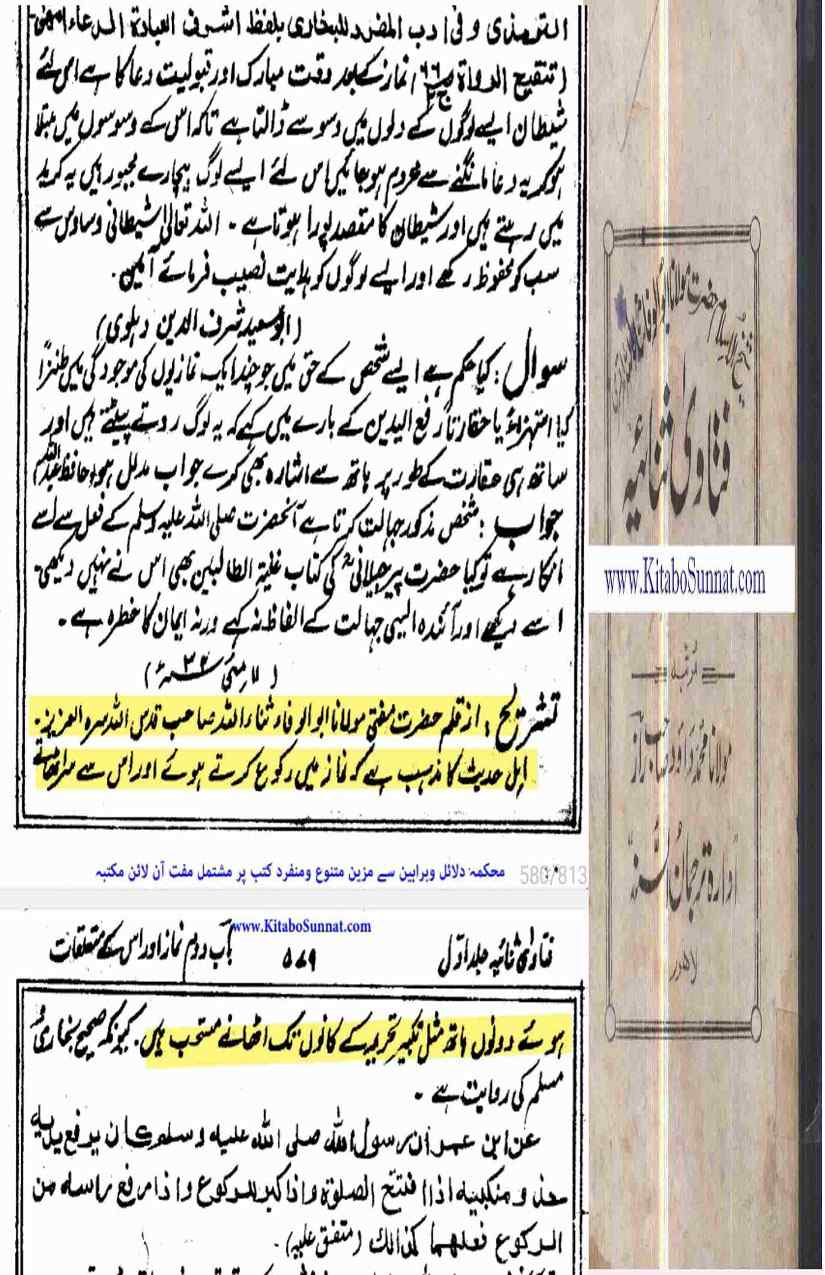 الترمذی وفی ادب المفرد للبخاری بلفظ اشرف العبادة الدعاء
(تنقیح الرواة ص۶۶) نماز کے بعد وقت مبارک اور قبولیت دعا کا ہے اس لئے
شیطان ایسے لوگوں کے دلوں میں وسوسے ڈالتا ہے تاکہ اس کے وسوسوں میں مبتلا
ہوکر یہ دعا مانگنے سے محروم ہوجائیں اس لئے ایسے لوگ بیچارے مجبور ہیں یہ کرید
میں رہتے ہیں اور شیطان کا مقصد پورا ہوتا ہے۔ اللہ تعالیٰ شیطانی وساوس سے
سب کو محفوظ رکھے اور ایسے لوگوں کو ہدایت نصیب فرمائے آمین۔
(ابوسعید شرف الدین دہلوی)
سوال: کیا حکم ہے ایسے شخص کے حق میں جو چند ایک نمازیوں کی موجودگی میں طنزاً
کیا استہزاءً یا حقارتاً رفع الیدین کے بارے میں کہے کہ یہ لوگ روتے پیٹتے ہیں اور
ساتھ ہی حقارت کے طور پر ہاتھ سے اشارہ بھی کرے جواب مدلل ہو (حافظ
جواب: شخص مذکور جہالت کرتا ہے آنحضرت صلی اللہ علیہ وسلم کے فعل سے اسے
انکار ہے تو کیا حضرت پیر جیلانیؒ کی کتاب غنیۃ الطالبین بھی اس نے نہیں دیکھی۔
اسے دیکھے اور آئندہ ایسی جہالت کے الفاظ نہ کہے ورنہ ایمان کا خطرہ ہے۔
مئی
تشریح: از قلم حضرت مفتی مولانا ابو الوفاء ثناء اللہ صاحب قدس اللہ سرہ العزیز۔
اہل حدیث کا مذہب ہے کہ نماز میں رکوع کرتے ہوئے اور اس سے سر اٹھاتے
محکمہ دلائل وبراہین سے مزین متنوع ومنفرد کتب پر مشتمل مفت آن لائن مکتبہ
580/813
www.KitaboSunnat.com
فتاویٰ ثنائیہ جلد اوّل ۵۷۹ باب دوم نماز اور اس کے متعلقات
ہوئے دونوں ہاتھ مثل تکبیر تحریمہ کے کانوں تک اٹھانے مستحب ہیں۔ کیونکہ صحیح بخاری
مسلم کی روایت ہے۔
عن ابن عمر ان رسول اللہ صلی اللہ علیہ وسلم کان یرفع یدیہ
حذو منکبیہ اذا افتتح الصلوة واذا کبر للرکوع واذا رفع راسہ من
الرکوع فعلھما کذالک (متفق علیہ)۔
شیخ الاسلام حضرت مولانا ابوالوفا ثناء اللہ
فتاویٰ ثنائیہ
www.KitaboSunnat.com
مرتبہ
مولانا محمد داؤد صاحب راز
ادارہ ترجمان السنہ
لاہور